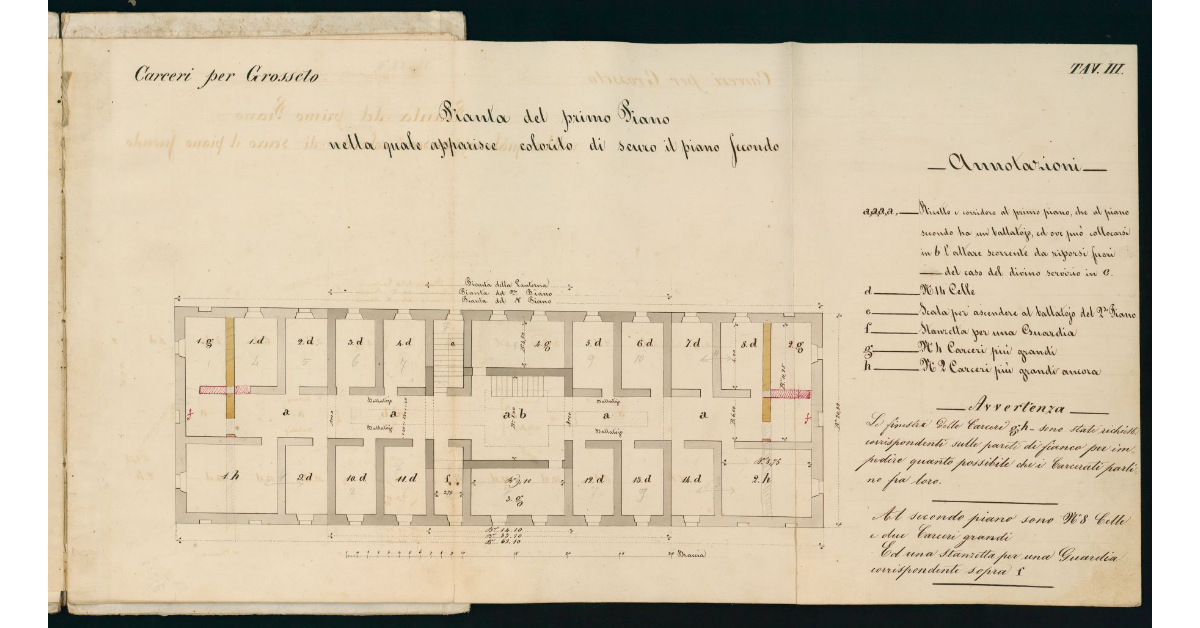 Carceri per Grosseto
TAV. III.
Pianta del primo Piano
nella quale apparisce colorito di scuro il piano secondo
Annotazioni
a,a,a,a, Ricetto e corridore al primo piano, che al piano
secondo ha un ballatojo, ed ove può collocarsi
in b l'altare scorrente da riporsi fuori
del caso del divino servizio in c.
d N° 14 Celle
e Scala per ascendere al ballatojo del 2do Piano
f Stanzetta per una Guardia
g N° 4 Carceri più grandi
h N° 2 Carceri più grandi ancora
Avvertenza
Le finestre delle Carceri g, h sono state richieste
corrispondenti sulle pareti di fianco per im-
pedire quanto possibile che i Carcerati parli-
no fra loro.
Al secondo piano sono N° 8 Celle
e due Carceri grandi
Ed una stanzetta per una Guardia
corrispondente sopra f
Pianta della Lanterna
Pianta del 2do Piano
Pianta del 1° Piano
1.g 1.d 2.d 3.d 4.d e 4.g 5.d 6.d 7.d 8.d 2.g
4 5 6 7 9 10
Ballatojo Ballatojo
f a a a b a a f
Ballatojo Ballatojo
1.h 9.d 10.d 11.d f 3.g 12.d 13.d 14.d 2.h
Braccia